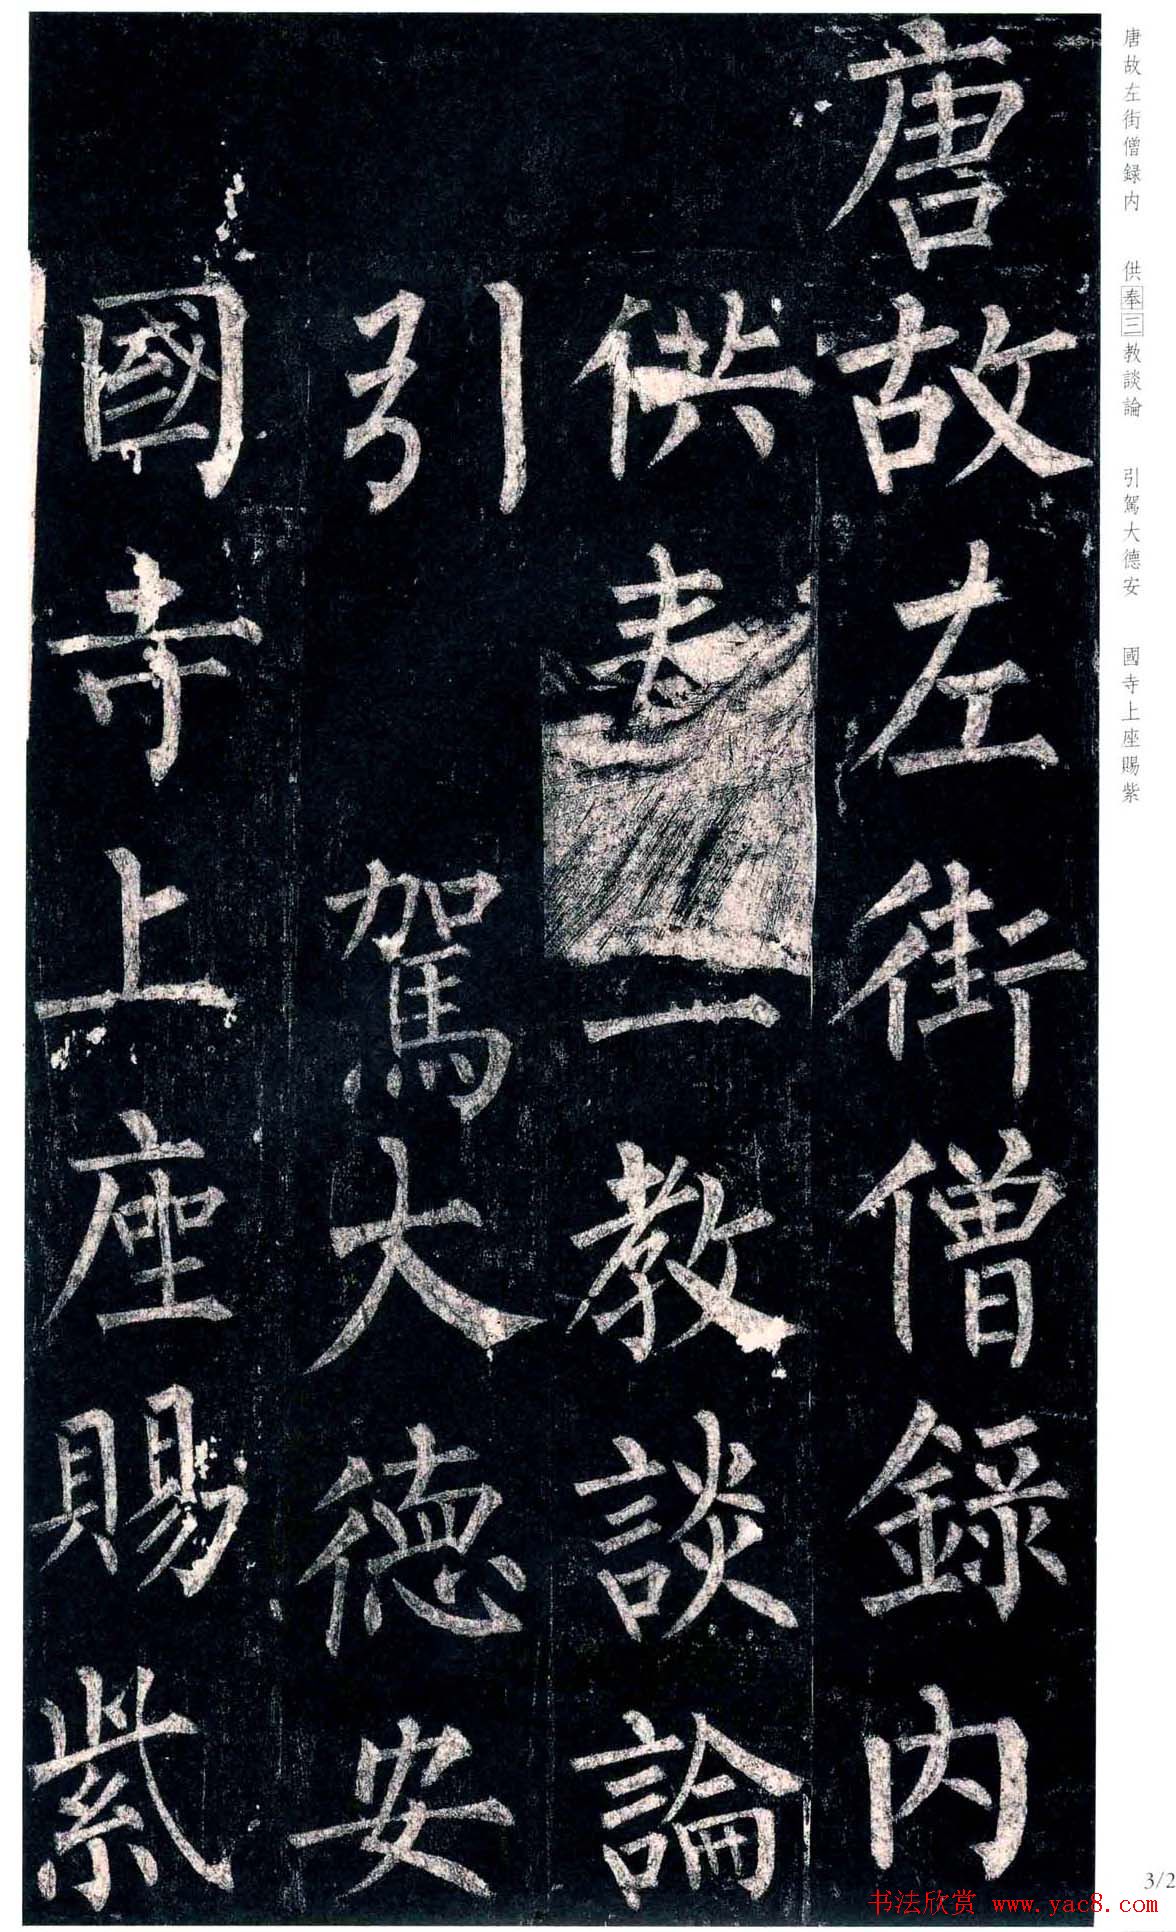 唐故左街僧録内　供奉三教談論　引駕大德安　國寺上座賜紫
唐故左街僧錄内
供教談論
引駕大德安
國寺上座賜紫
3/2
书法欣赏 www.yac8.com